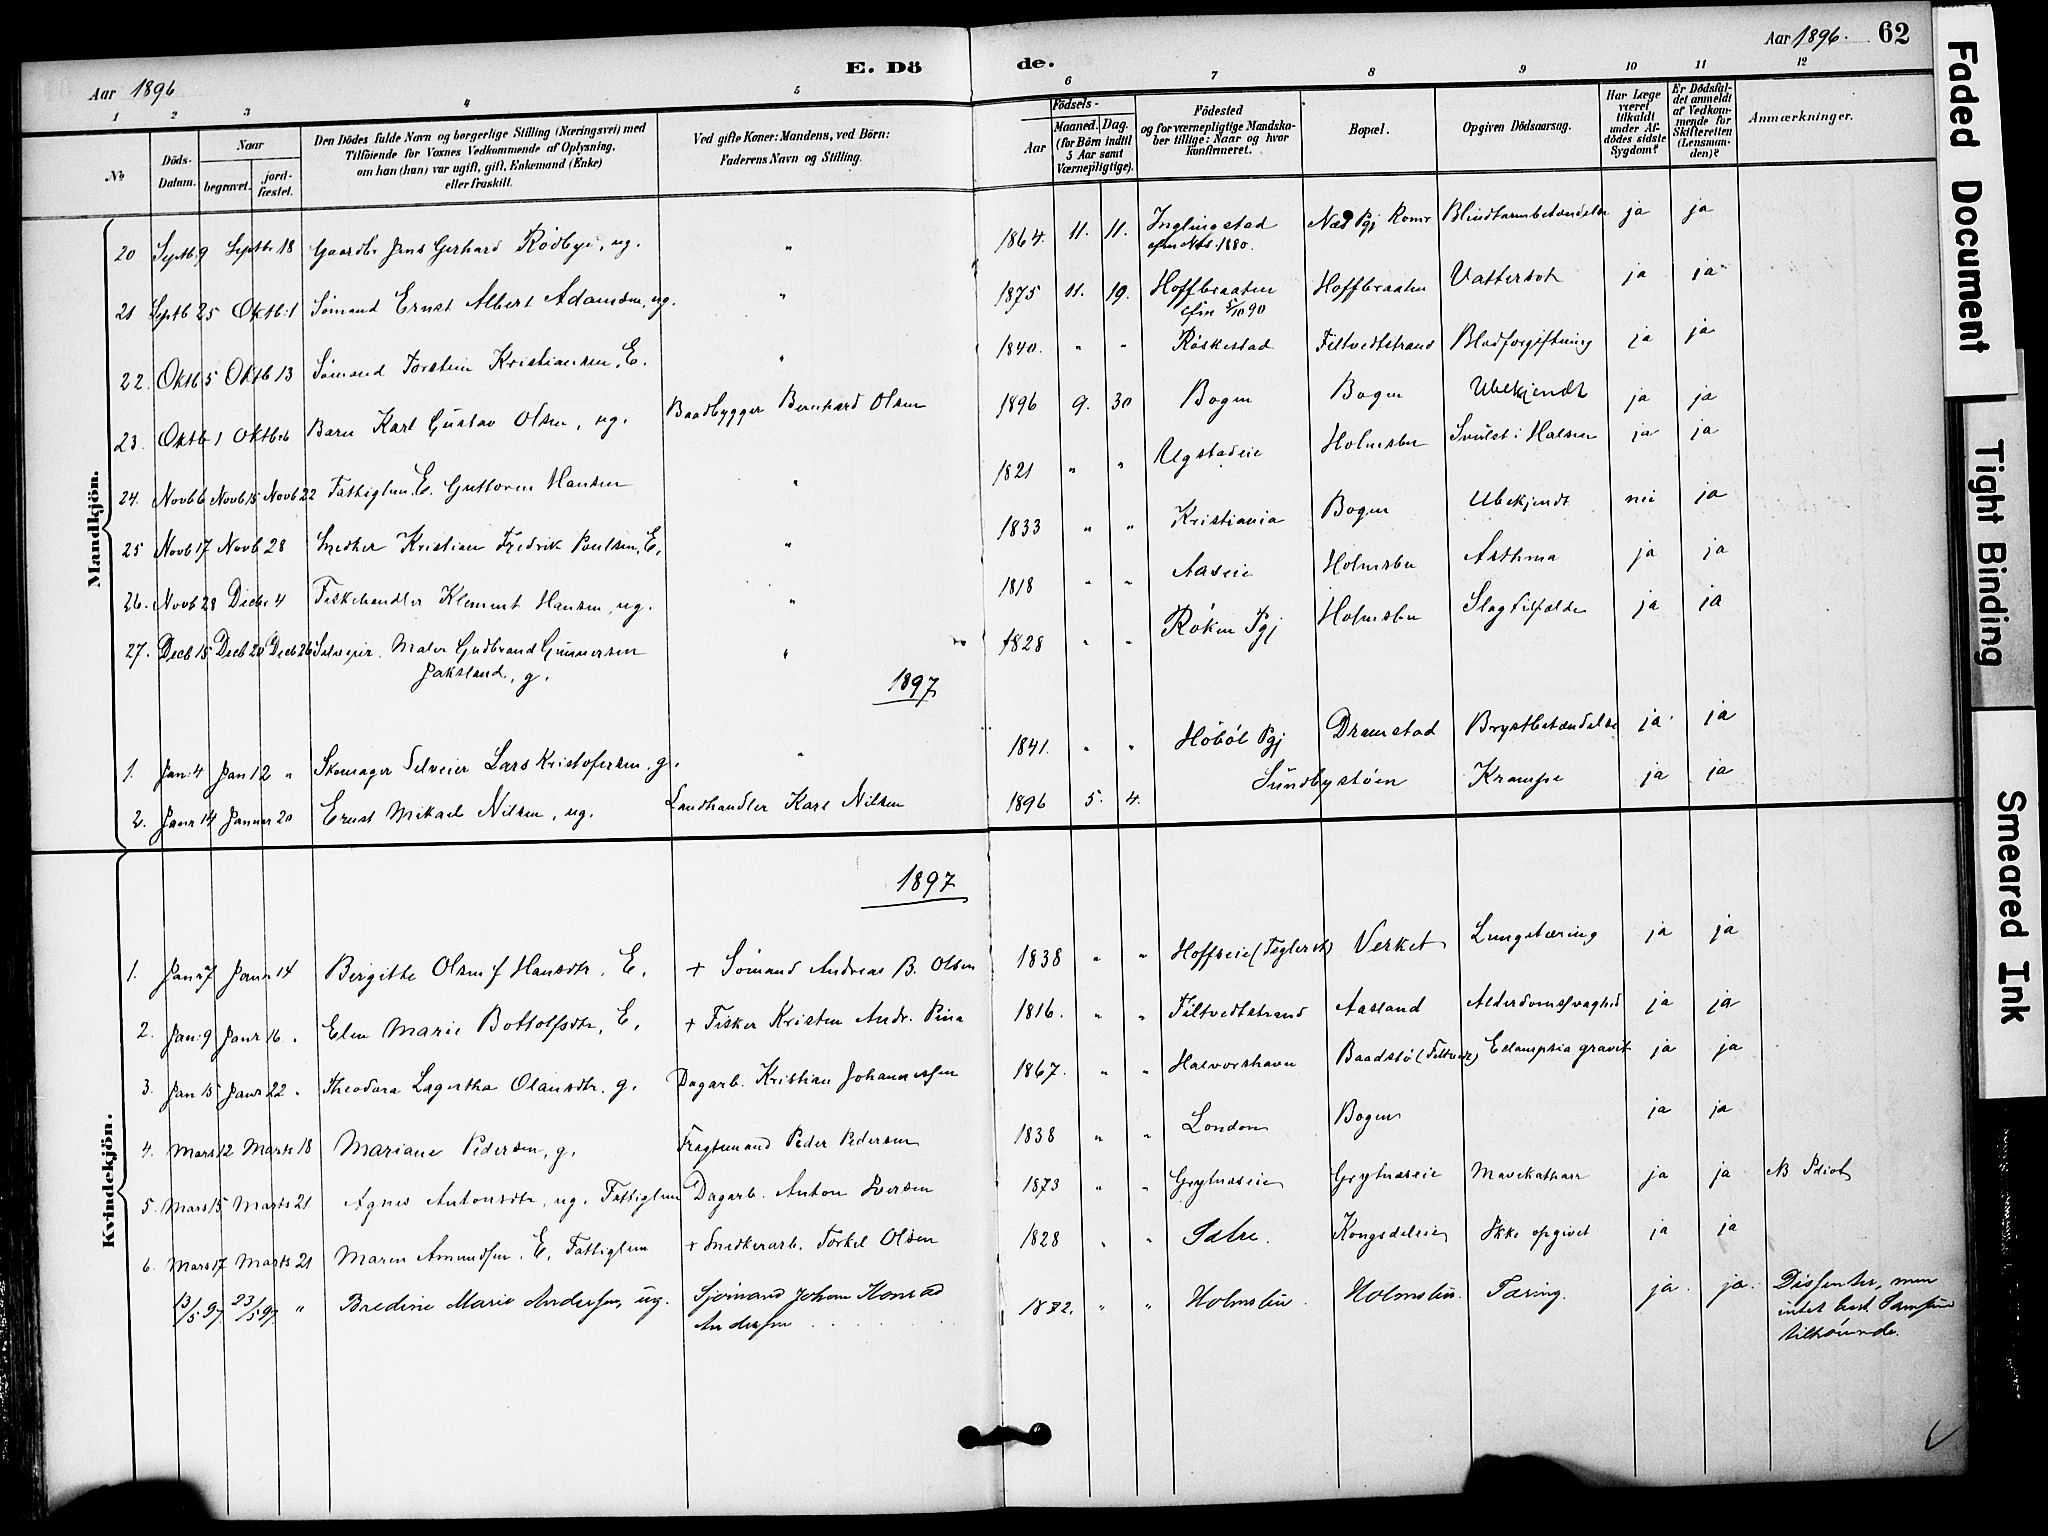 Aar 1896
E. Dö
de.
Aar 1896.
62
1 2 3 4 5 6 7 8 9 10 11 12
No
Döds-Datum.
Naar begravet. jordfæstet.
Den Dödes fulde Navn og borgerlige Stilling (Næringsvei) med
Tilföiende for Voxnes Vedkommende af Oplysning,
om han (hun) var ugift, gift, Enkemand (Enke)
eller fraskilt.
Ved gifte Koner: Mandens, ved Börn:
Faderens Navn og Stilling.
Födsels-
Aar Maaned. Dag.
(for Börn indtil 5 Aar samt Værnepligtige).
Födested
og for værnepligtige Mandskaber tillige: Naar og hvor konfirmeret.
Bopæl.
Opgiven Dödsaarsag.
Har Læge været tilkaldt under Afdödes sidste Sygdom?
Er Dödsfaldet anmeldt af Vedkommende for Skifteretten (Lensmanden)?
Anmærkninger.
Mandkjön.
20 Septb. 9 Septb. 18 Gaardbr. Jens Gerhard Rödbye, ug. " 1864. 11. 11. Inglingstad Næs Pgj Romr Blindtarmbetændelse ja ja
1880.
21 Septb 25 Oktb. 1 Sømand Ernst Albert Adamsen, ug. " 1875 11. 19. Hoffbraaten Hoffbraaten Vattersot ja ja
cfm 5/10 90
22. Oktb 5 Oktb 13 Sømand Torstein Kristiansen, E. " 1840. " " Röskestad Filtvedtstrand Blodforgiftning ja ja
23. Oktb 1 Oktb 6 Barn Karl Gustav Olsen, ug. Baadbygger Bernhard Olsen 1896 9. 30 Bogen Bogen Ubekjendt ja ja
24. Novb 6 Novb 15 Novb 22 Fattiglem, E. Guttorm Hansen " 1821 " " Ugstadeie Holmsbu Svulst i Halsen ja ja
25 Novb 17 Novb 28 Snedker Kristian Fredrik Poulsen, E. " 1833 " " Kristiania Bogen Ubekjendt nei ja
26. Novb 28 Decbr 4 Fiskehandler Klement Hansen, ug. " 1818 " " Aaseie Holmsbu Asthma ja ja
27. Decb 15 Decb 20 Decb 26 Selveier. Maler Gudbrand Gunnersen " 1828 " " Röken Pgj Holmsbu Slagtilfælde ja ja
Jaksland, g.
1897
1. Jan. 4 Jan 12 " Skomager Selveier Lars Kristofersen, g. " 1841. " " Höböl Pgj Dramstad Brystbetændelse ja ja
2. Janr 14 Januar 20 Ernst Mikael Nilsen, ug. Landhandler Karl Nilsen 1896 5. 4. Sundbystöen Krampe ja ja
1897
Kvindekjön.
1. Janr 7 Janr 14 Birgitte Olsen f Hansdtr, E. + Sömand Andreas B. Olsen 1838 " " Hoffseie (Teglerst) Verket Lungetæring ja ja
2. Jan. 9 Janr 16. " Elen Marie Bottolfsdtr, E. + Fisker Kristen Andr. 1816. " " Filtvedtstrand Aasland Alderdomsvaghed ja ja
3. Jan 15 Janr 22 " Theodora Lagertha Olausdtr. g. Dagarb. Kristian Johannesen 1867. " " Halvorshavn Baadstö (Filtvet) Eclampsia gravit ja ja
4. Mars 12 Marts 18 Mariane Pedersen, g. Fragtemand Peder Pedersen 1838 " " London Bogen ja ja
5. Mars 15 Marts 21 Agnes Antonsdtr, ug. Fattiglem Dagarb. Anton Iversen 1873 " " Grytnæseie Grytnæseie Mavekatharr ja ja NB Idiot
6. Mars 17 Marts 21 Maren Amundsen. E. Fattiglem + Snedkerarb. Torkel Olsen 1828 " " Sætre. Kongsdeleie Ikke opgivet ja ja
13/5 97 23/5 97 " Bredine Marie Andersen, ug. Sjömand Johan Konrad 1882. " " Holmsbu. Holmsbu. Tæring. ja. ja. Dissenter, men
Andersen
intet best. Samfund
tilhörende.
Faded Document
Tight Binding
Smeared Ink